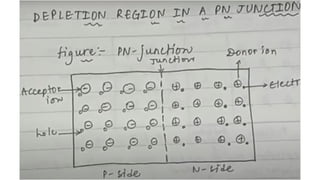 DEPLETION REGION IN A PN JUNCTION
figure:- PN-junction
Junction
Donor ion
Acceptor
ion
Electr
hole
P-side
N-side